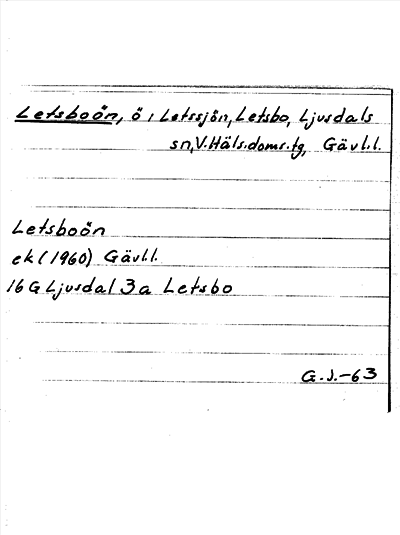 Letsboön, ö i Letssjön, Letsbo, Ljusdals
sn, V. Häls. doms. tg, Gävl.l.
Letsboön
ek (1960) Gävll.
16 G Ljusdal 3a Letsbo
G.J.-63